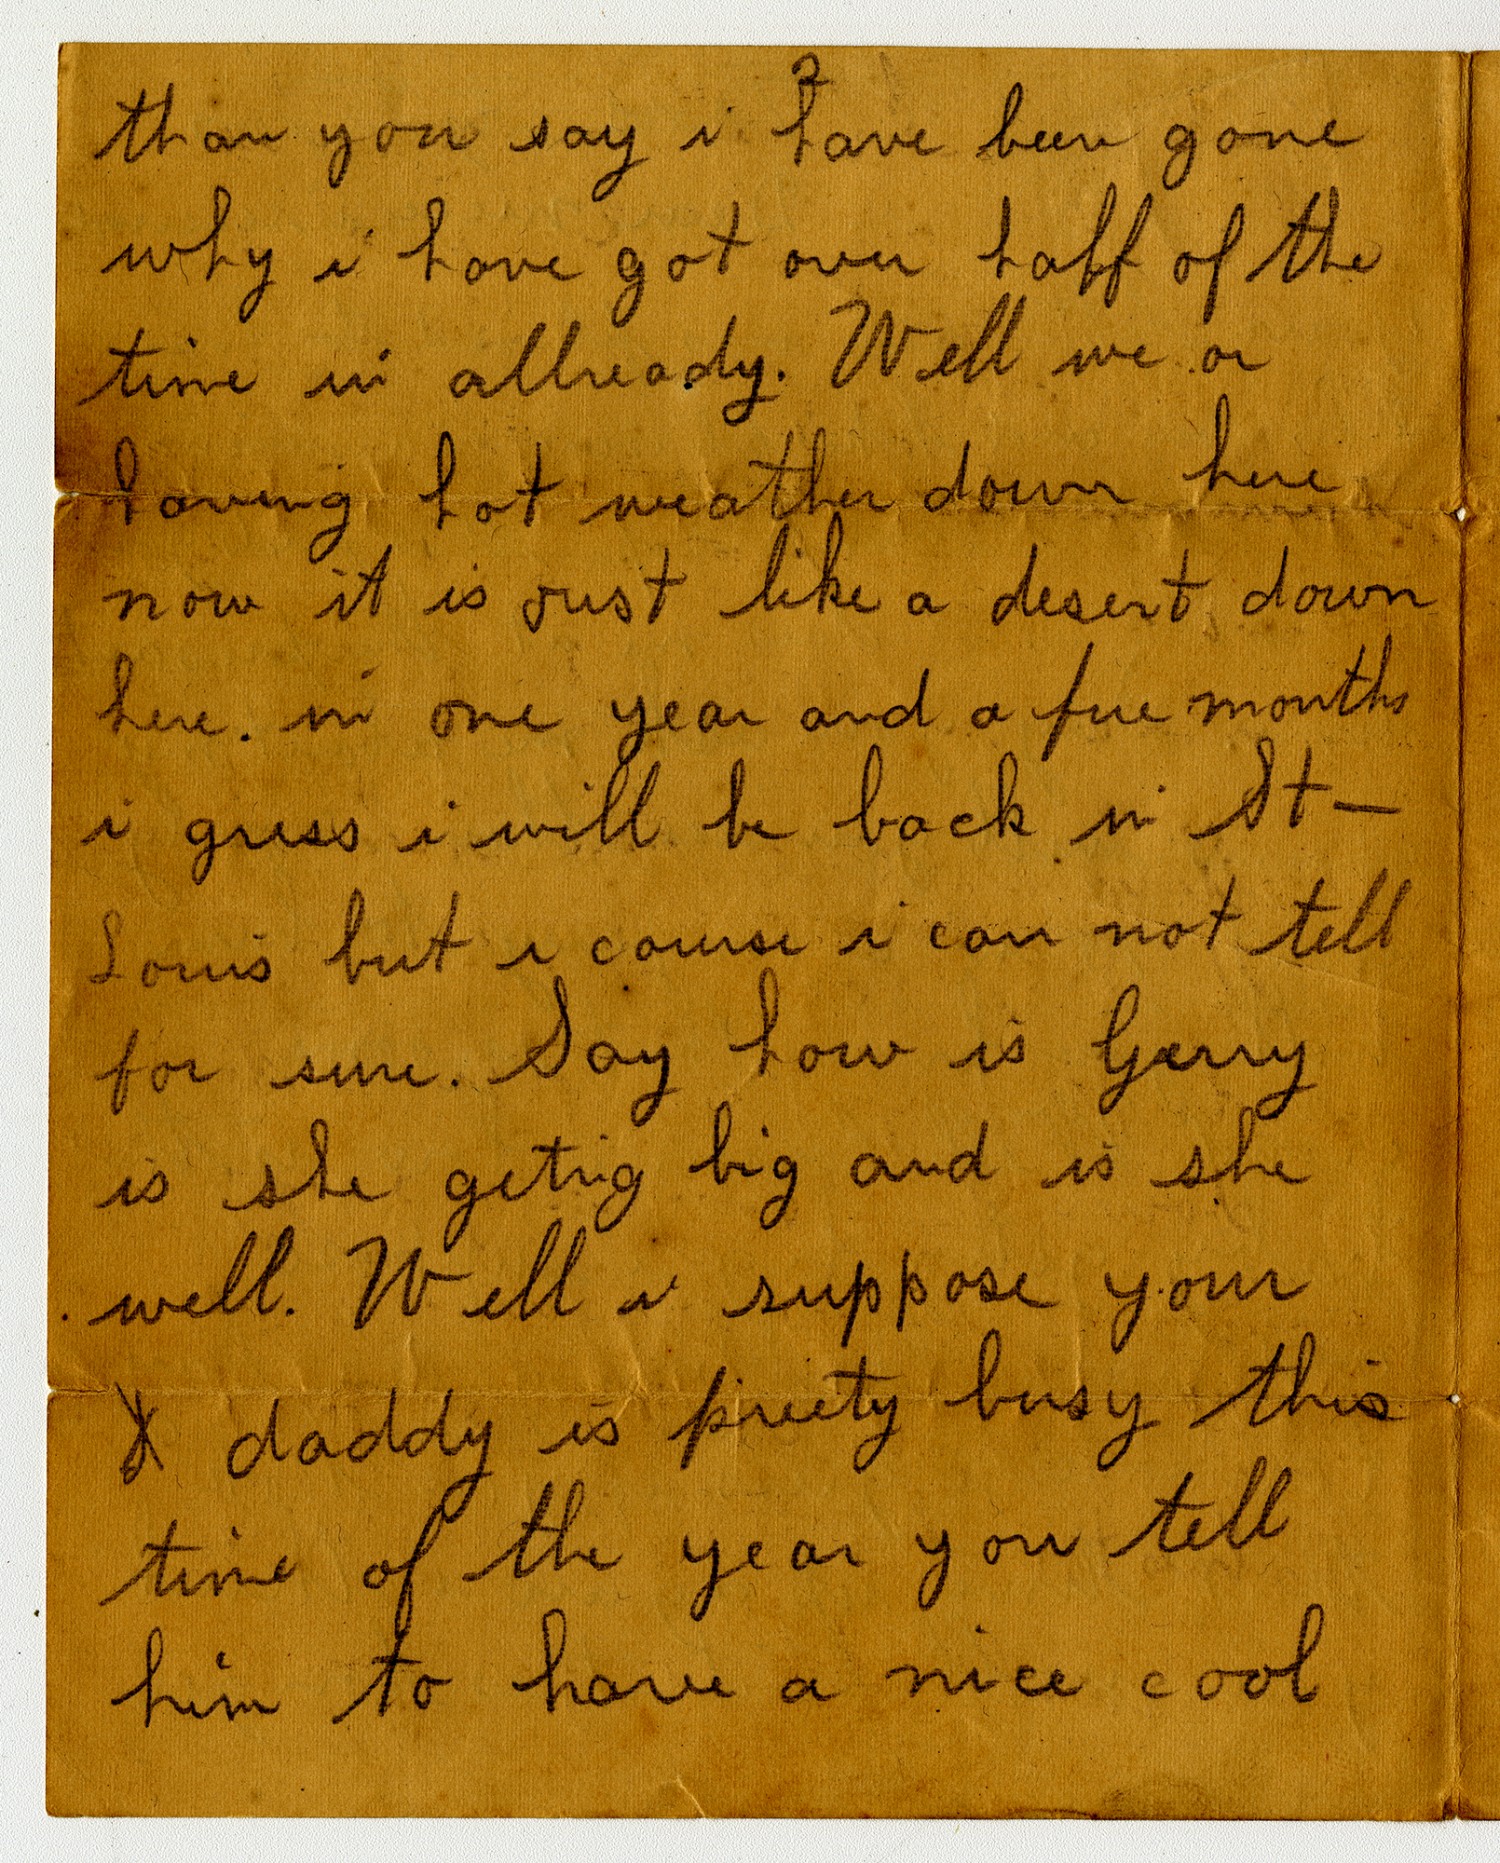 2
than you say i have been gone
why i have got over half of the
time in allready. Well we ar
having hot weather down here
now it is just like a desert down
here. in one year and a fue months
i gress i will be back in St-
Louis but i course i can not tell
for sure. Say how is Gerry
is she geting big and is she
well. Well i suppose your
X daddy is preety busy this
time of the year you tell
him to have a nice cool